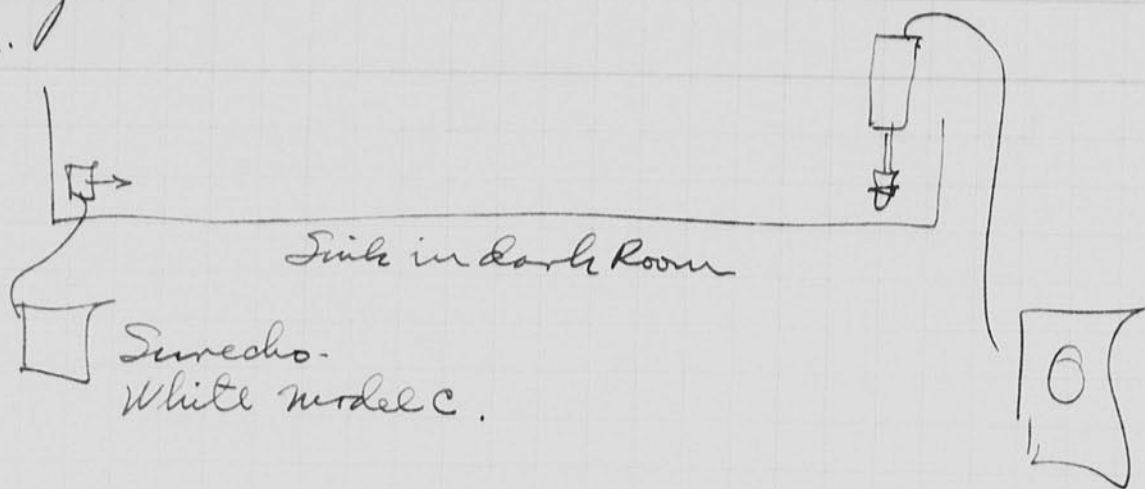 Sink in dark Room
Surecho-
White model C.